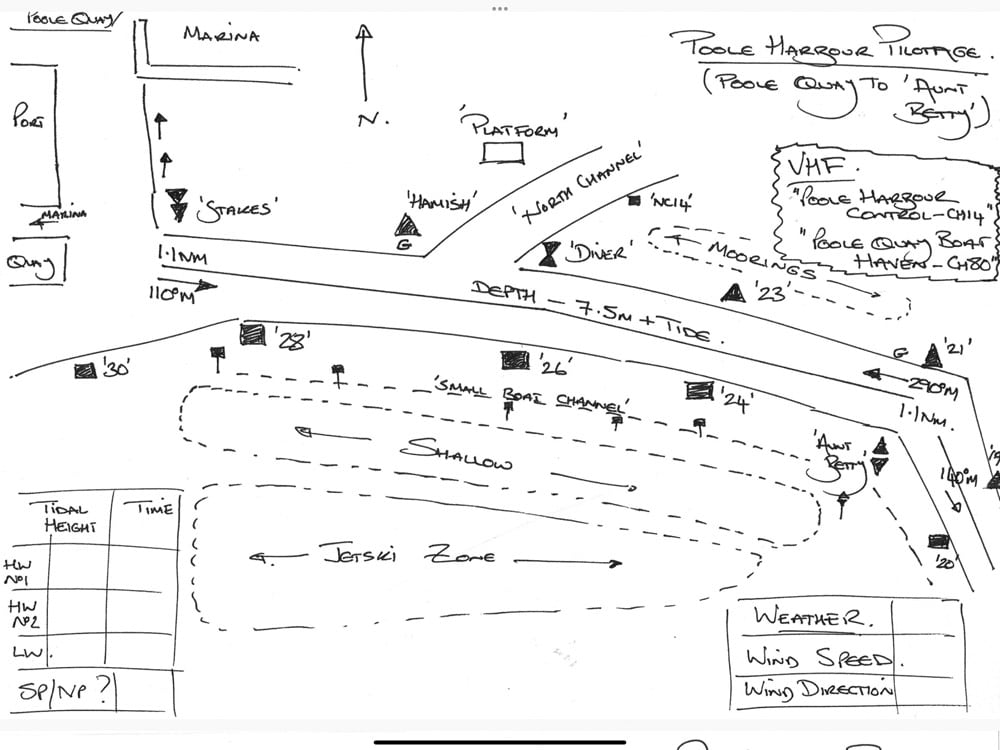 POOLE QUAY
MARINA
POOLE HARBOUR PILOTAGE.
(POOLE QUAY TO 'AUNT
BETTY')
PORT
N.
'PLATFORM'
VHF.
"POOLE HARBOUR
CONTROL-CH14"
"POOLE QUAY BOAT
HAVEN-CH80"
'STAKES'
'HAMISH'
G
'NORTH CHANNEL'
'NC14'
MARINA
QUAY
1.1NM
110°M
'DIVER'
MOORINGS
'23'
DEPTH - 7.5M + TIDE.
G '21'
290°M
1.1NM.
'30'
'28'
'26'
'24'
'SMALL BOAT CHANNEL'
SHALLOW
'AUNT
BETTY'
140°M
'20'
JETSKI ZONE
TIDAL
HEIGHT
TIME
HW
Nº1
HW
Nº2
LW.
SP/NP?
WEATHER.
WIND SPEED.
WIND DIRECTION